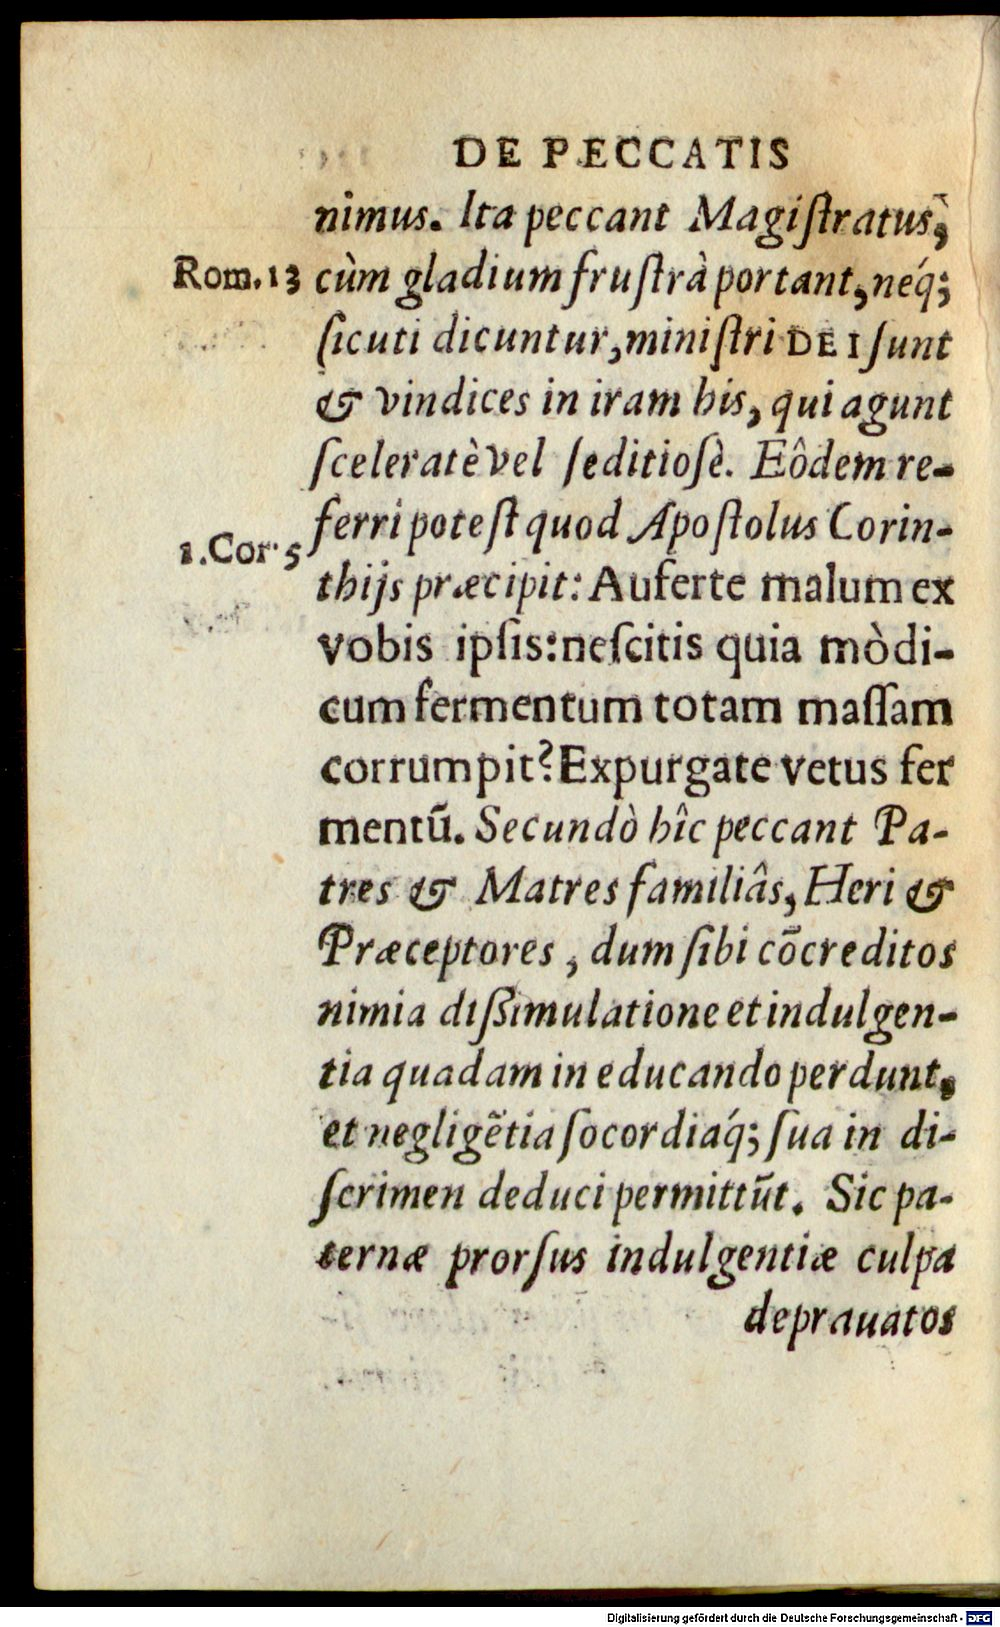 DE PECCATIS
nimus. Ita peccant Magiſtratus,
Rom. 13 cùm gladium fruſtrà portant, neq́;
ſicuti dicuntur, miniſtri DEI ſunt
& vindices in iram his, qui agunt
ſceleratè vel ſeditioſè. Eôdem re-
ferri poteſt quod Apoſtolus Corin-
1. Cor. 5
thijs præcipit: Auferte malum ex
vobis ipſis: neſcitis quia mòdi-
cum fermentum totam maſſam
corrumpit? Expurgate vetus fer
mentū. Secundò hîc peccant Pa-
tres & Matres familiâs, Heri &
Præceptores, dum ſibi cōcreditos
nimia diſsimulatione et indulgen-
tia quadam in educando perdunt,
et negligētia ſocordiaq́; ſua in di-
ſcrimen deduci permittūt. Sic pa-
ternæ prorſus indulgentiæ culpa
deprauatos
Digitalisierung gefördert durch die Deutsche Forschungsgemeinschaft - DFG